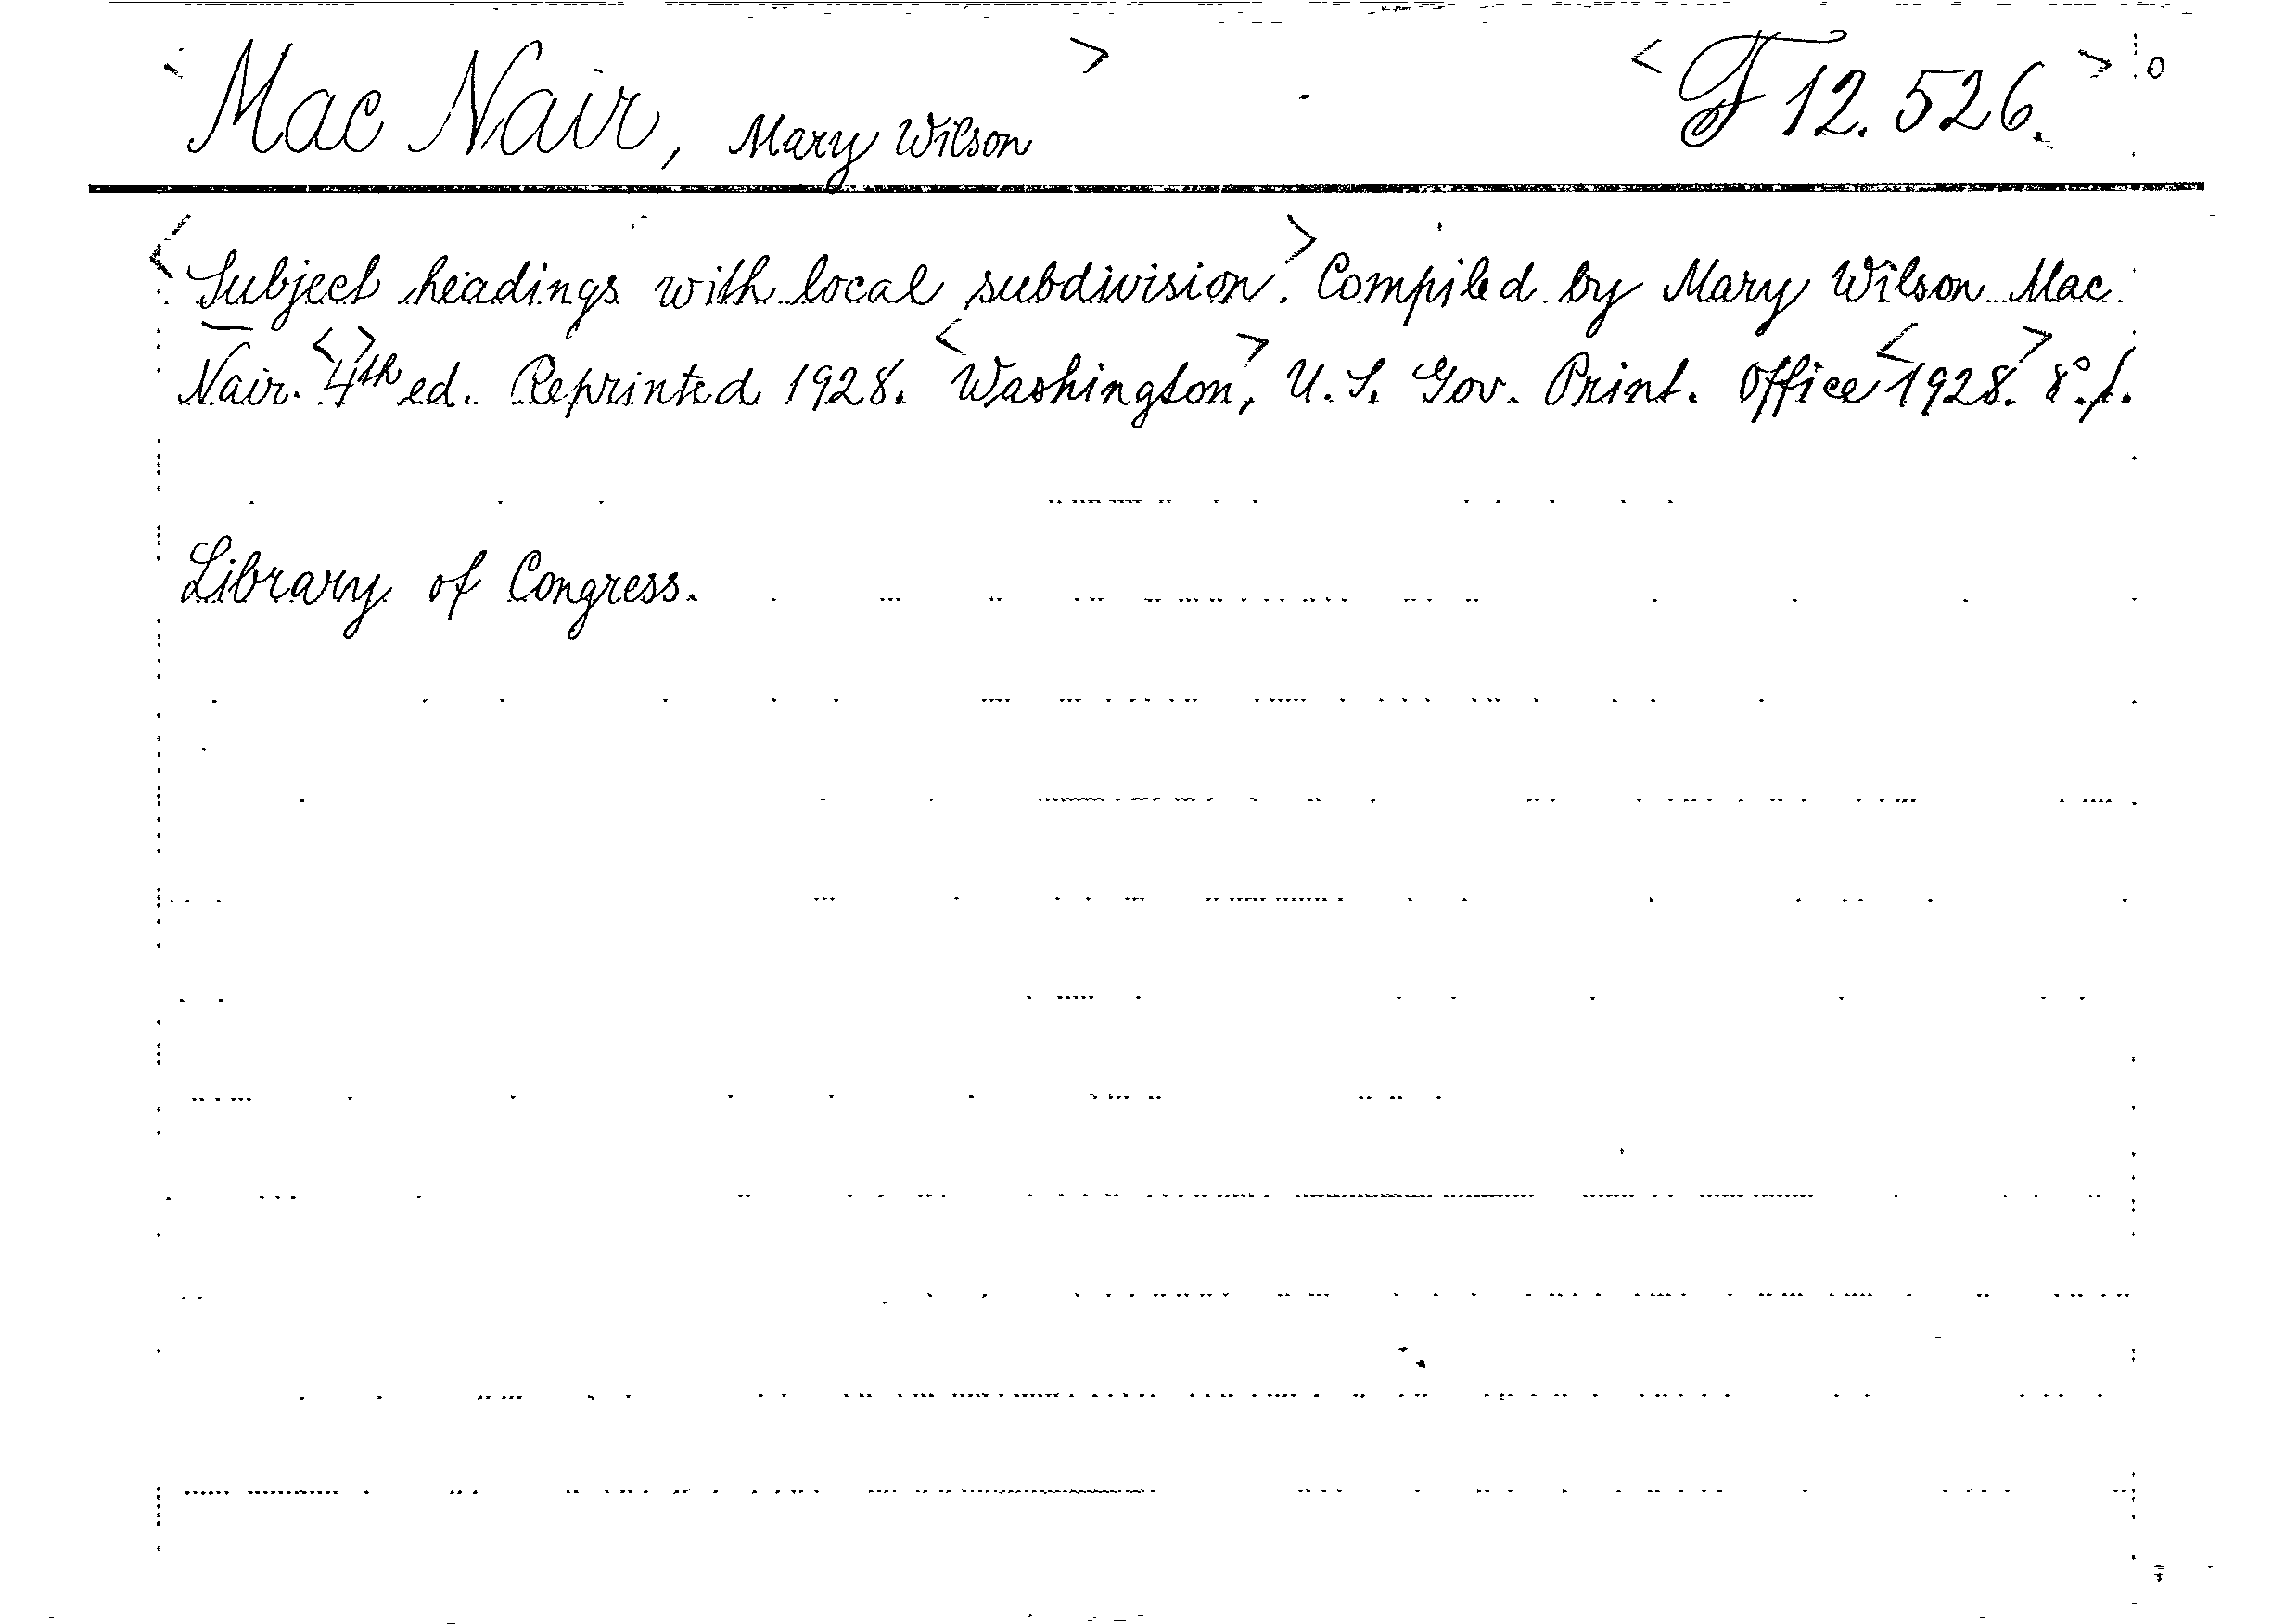 <Mac Nair, Mary Wilson> <F 12.526.> 0
<Subject headings with local subdivision.> Compiled by Mary Wilson Mac
Nair. <4th> ed. Reprinted 1928. <Washington>, U.S. Gov. Print. Office <1928.> 8°.
Library of Congress.